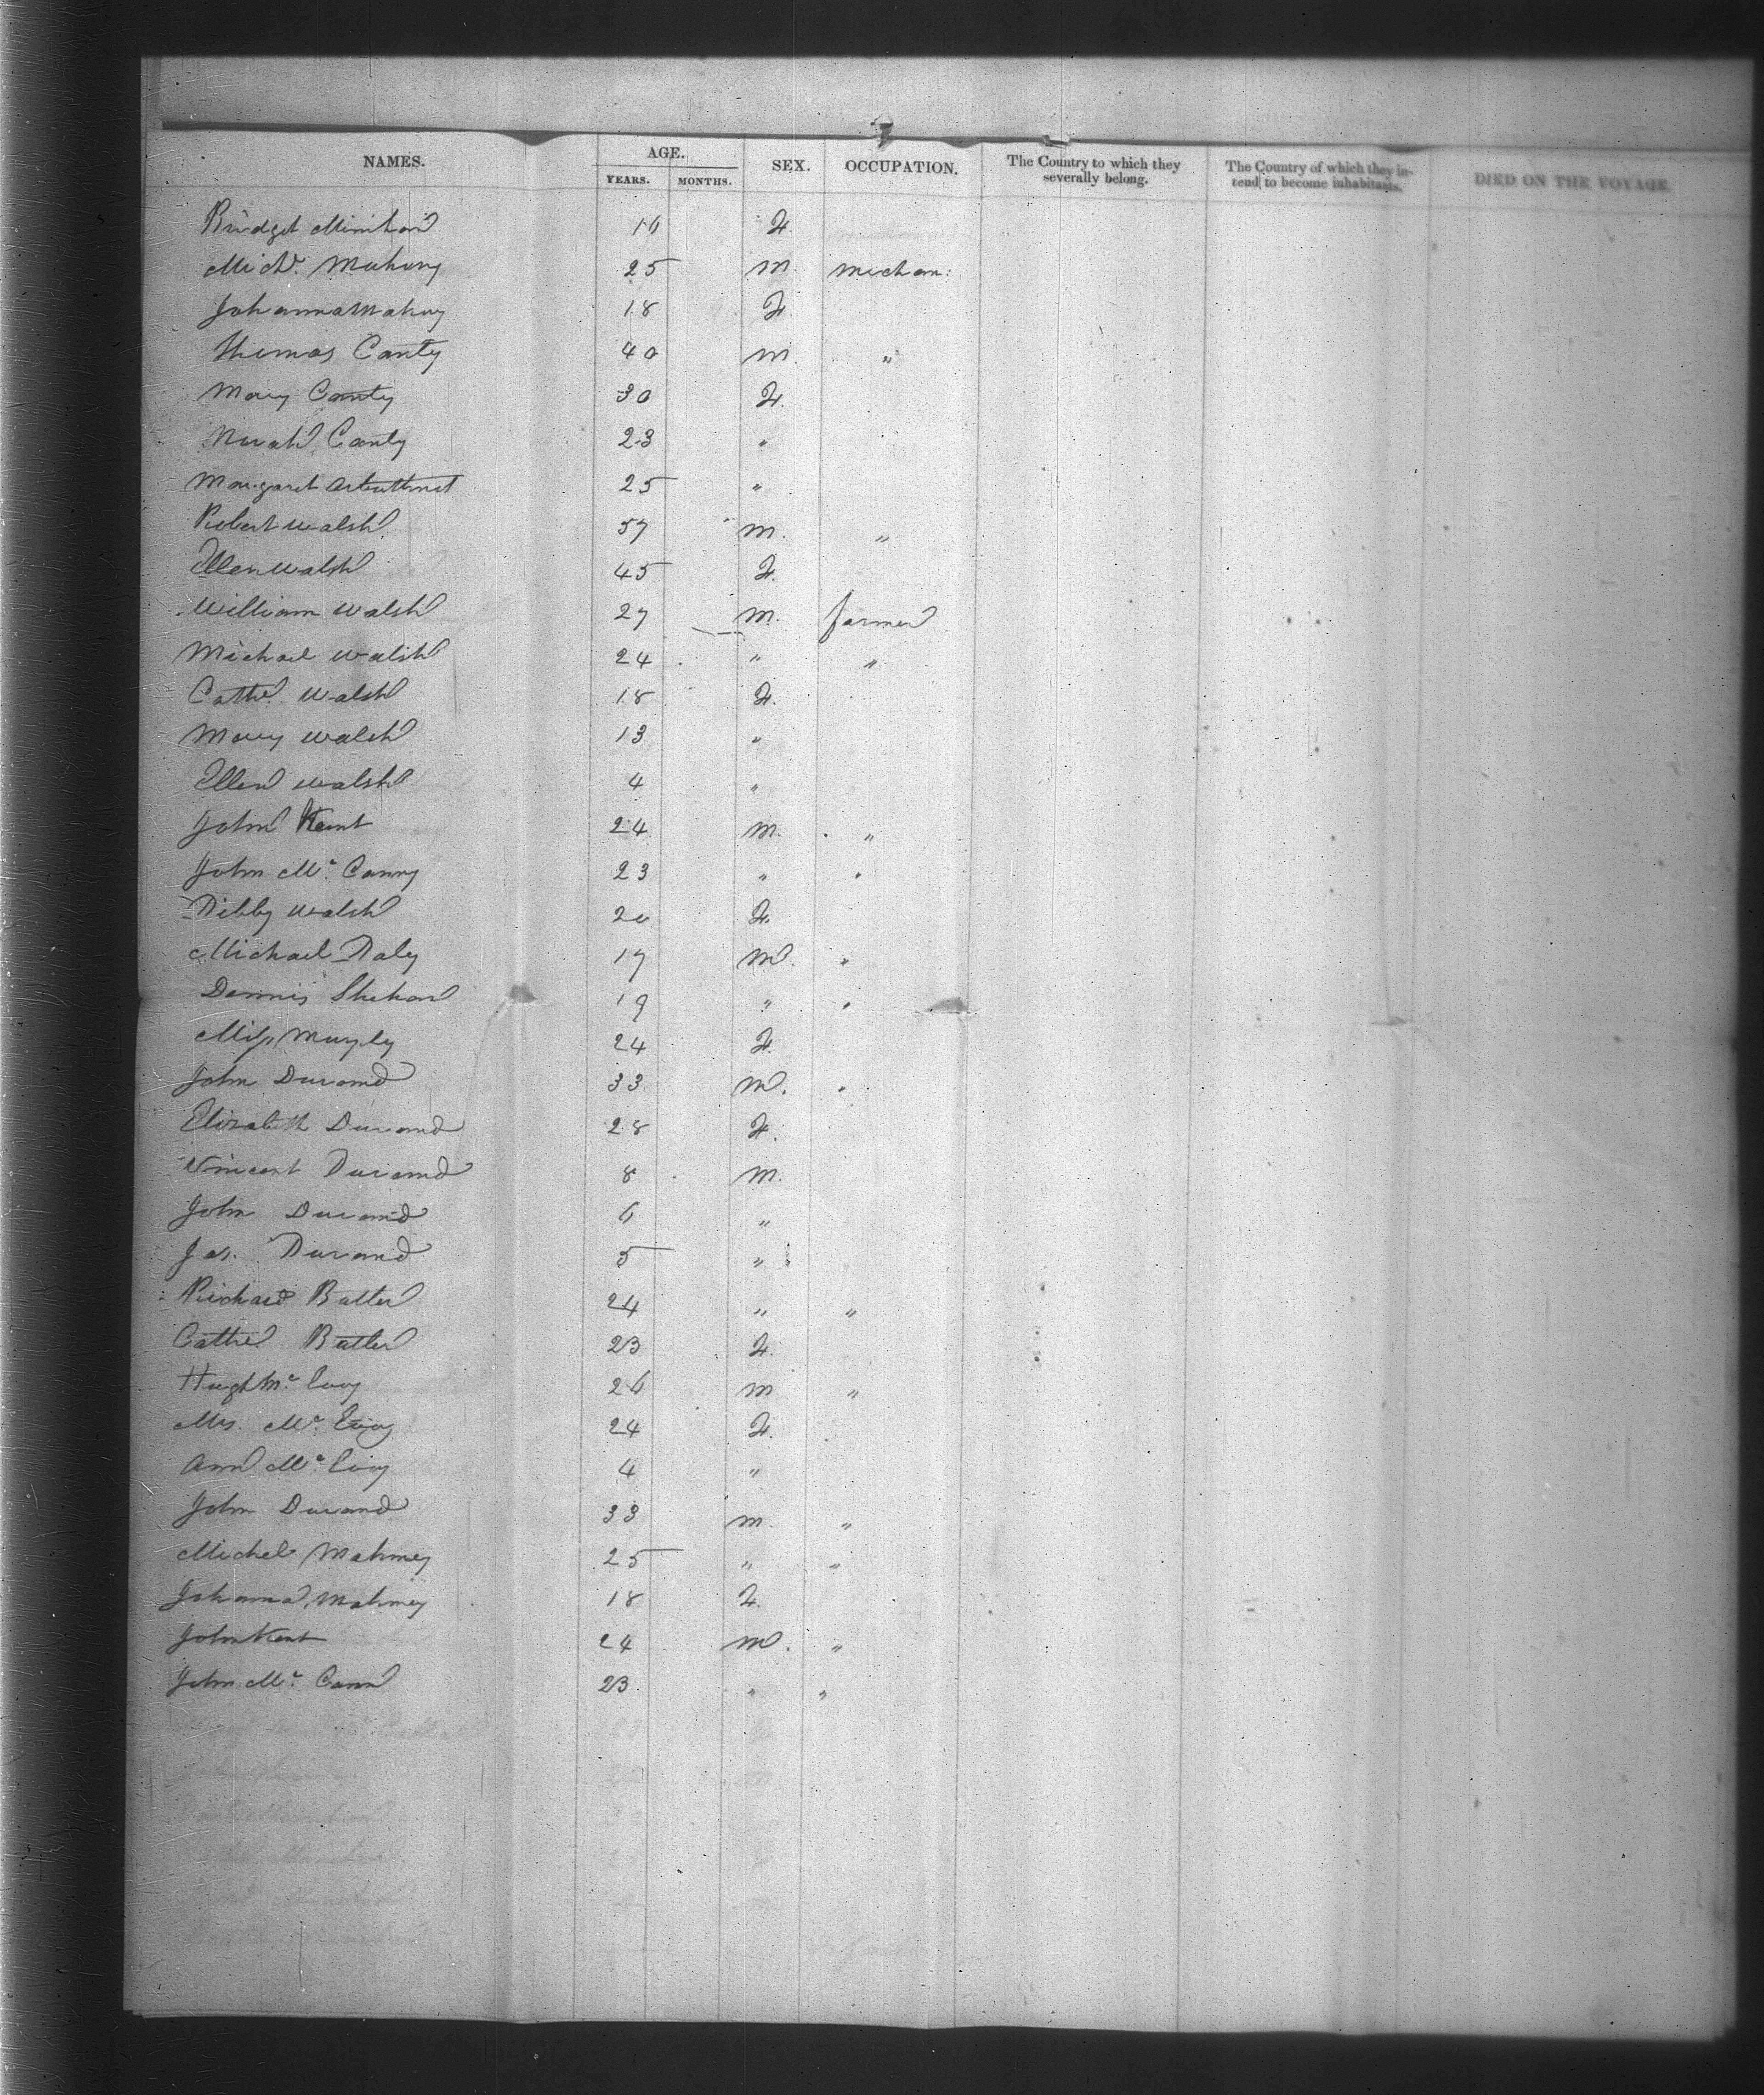 NAMES. AGE. SEX. OCCUPATION. The Country to which they severally belong. The Country of which they intend to become inhabitants. DIED ON THE VOYAGE.
YEARS. MONTHS.
Bridget 16 F.
Mich. Mahony 25 M. mechan:
Johanna Mahony 18 F
Thomas Canty 40 M. "
Mary Canty 30 F.
Norah Canty 23 "
Margaret Arbuthnot 25 "
Robert Walsh 57 M. "
Ellen Walsh 45 F.
William Walsh 27 M. farmer
Michael Walsh 24 " "
Cathe. Walsh 18 F.
Mary Walsh 13 "
Ellen Walsh 4 "
John Kent 24 M. "
John Mc. Canny 23 " "
Walsh 20 F.
Michael Daly 17 M. "
Dennis Shehan 19 " "
Miss Murphy 24 F.
John Durand 33 M. "
Elizabeth Durand 28 F.
Vincent Durand 8 M.
John Durand 6 "
Jas. Durand 5 "
Richard Butler 24 " "
Cathe Butler 23 F.
Hugh Mc Evoy 26 M "
Mrs. Mc. Evoy 24 F.
Ann Mc Evoy 4 "
John Durand 33 M. "
Michel Mahoney 25 " "
Johanna Mahoney 18 F.
John Kent 24 M. "
John Mc. Cann 23 " "